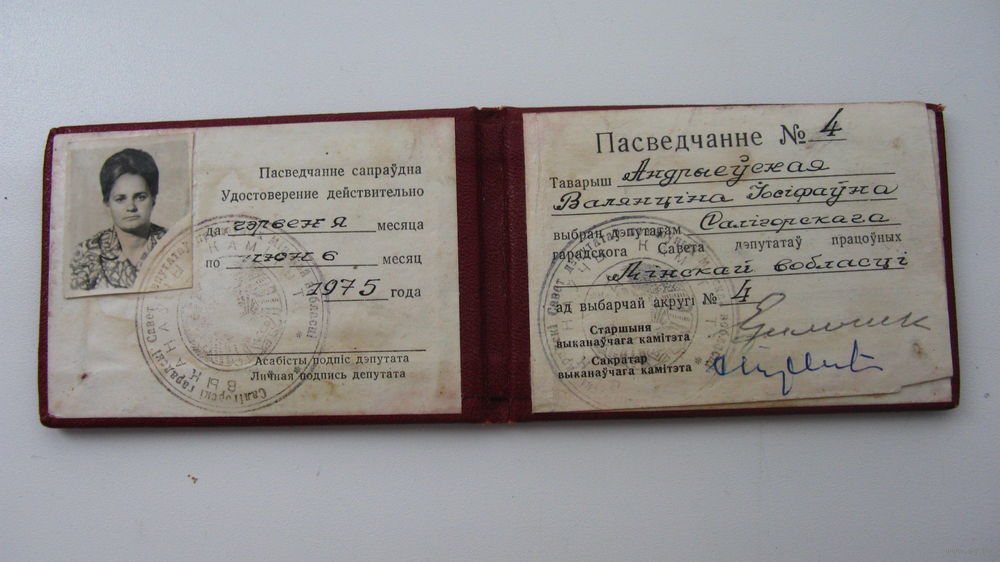 Пасведчанне сапраўдна
Удостоверение действительно
да чэрвеня месяца
по июнь месяц
1975 года
Асабісты подпіс дэпутата
Личная подпись депутата
Салігорскі гарадскі Савет дэпутатаў
Пасведчанне № 4
Таварыш Андрыеўская
Валянціна Іосіфаўна
выбран дэпутатам Салігорскага
гарадскога Савета дэпутатаў працоўных
Мінскай вобласці
ад выбарчай акругі № 4
Старшыня
выканаўчага камітэта
Сакратар
выканаўчага камітэта